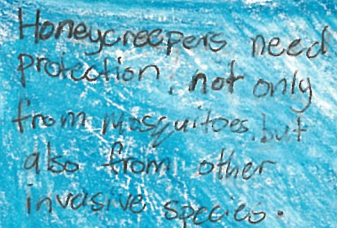 Honeycreepers need
protection, not only
from mosquitoes, but
also from other
invasive species.